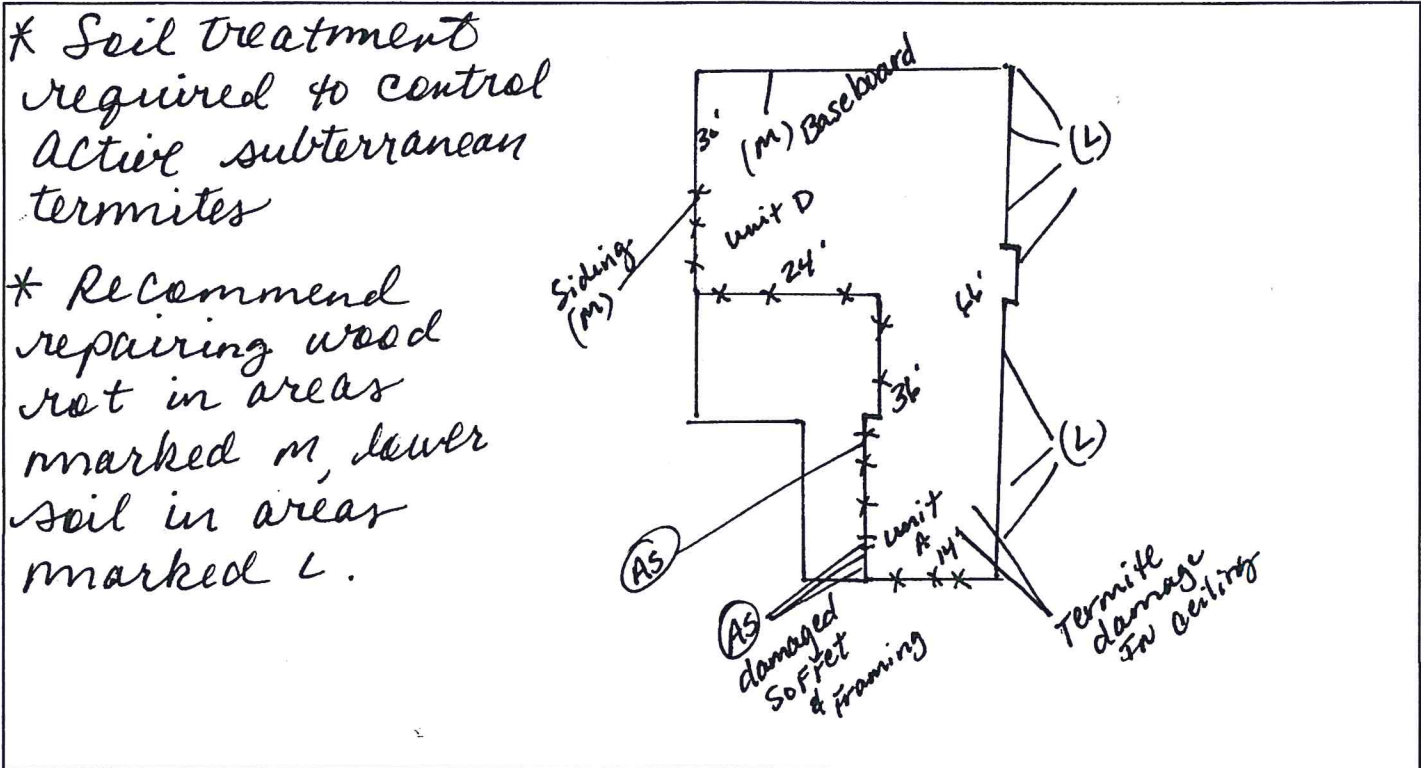 * Soil treatment
required to control
Active subterranean
termites
* Recommend
repairing wood
rot in areas
marked M, lower
soil in areas
marked L.
(M) Baseboard
unit D
24'
Siding
(M)
(L)
36'
(L)
(AS)
unit
A
14'
(AS)
damaged
Soffet
& framing
Termite
damage
In ceiling